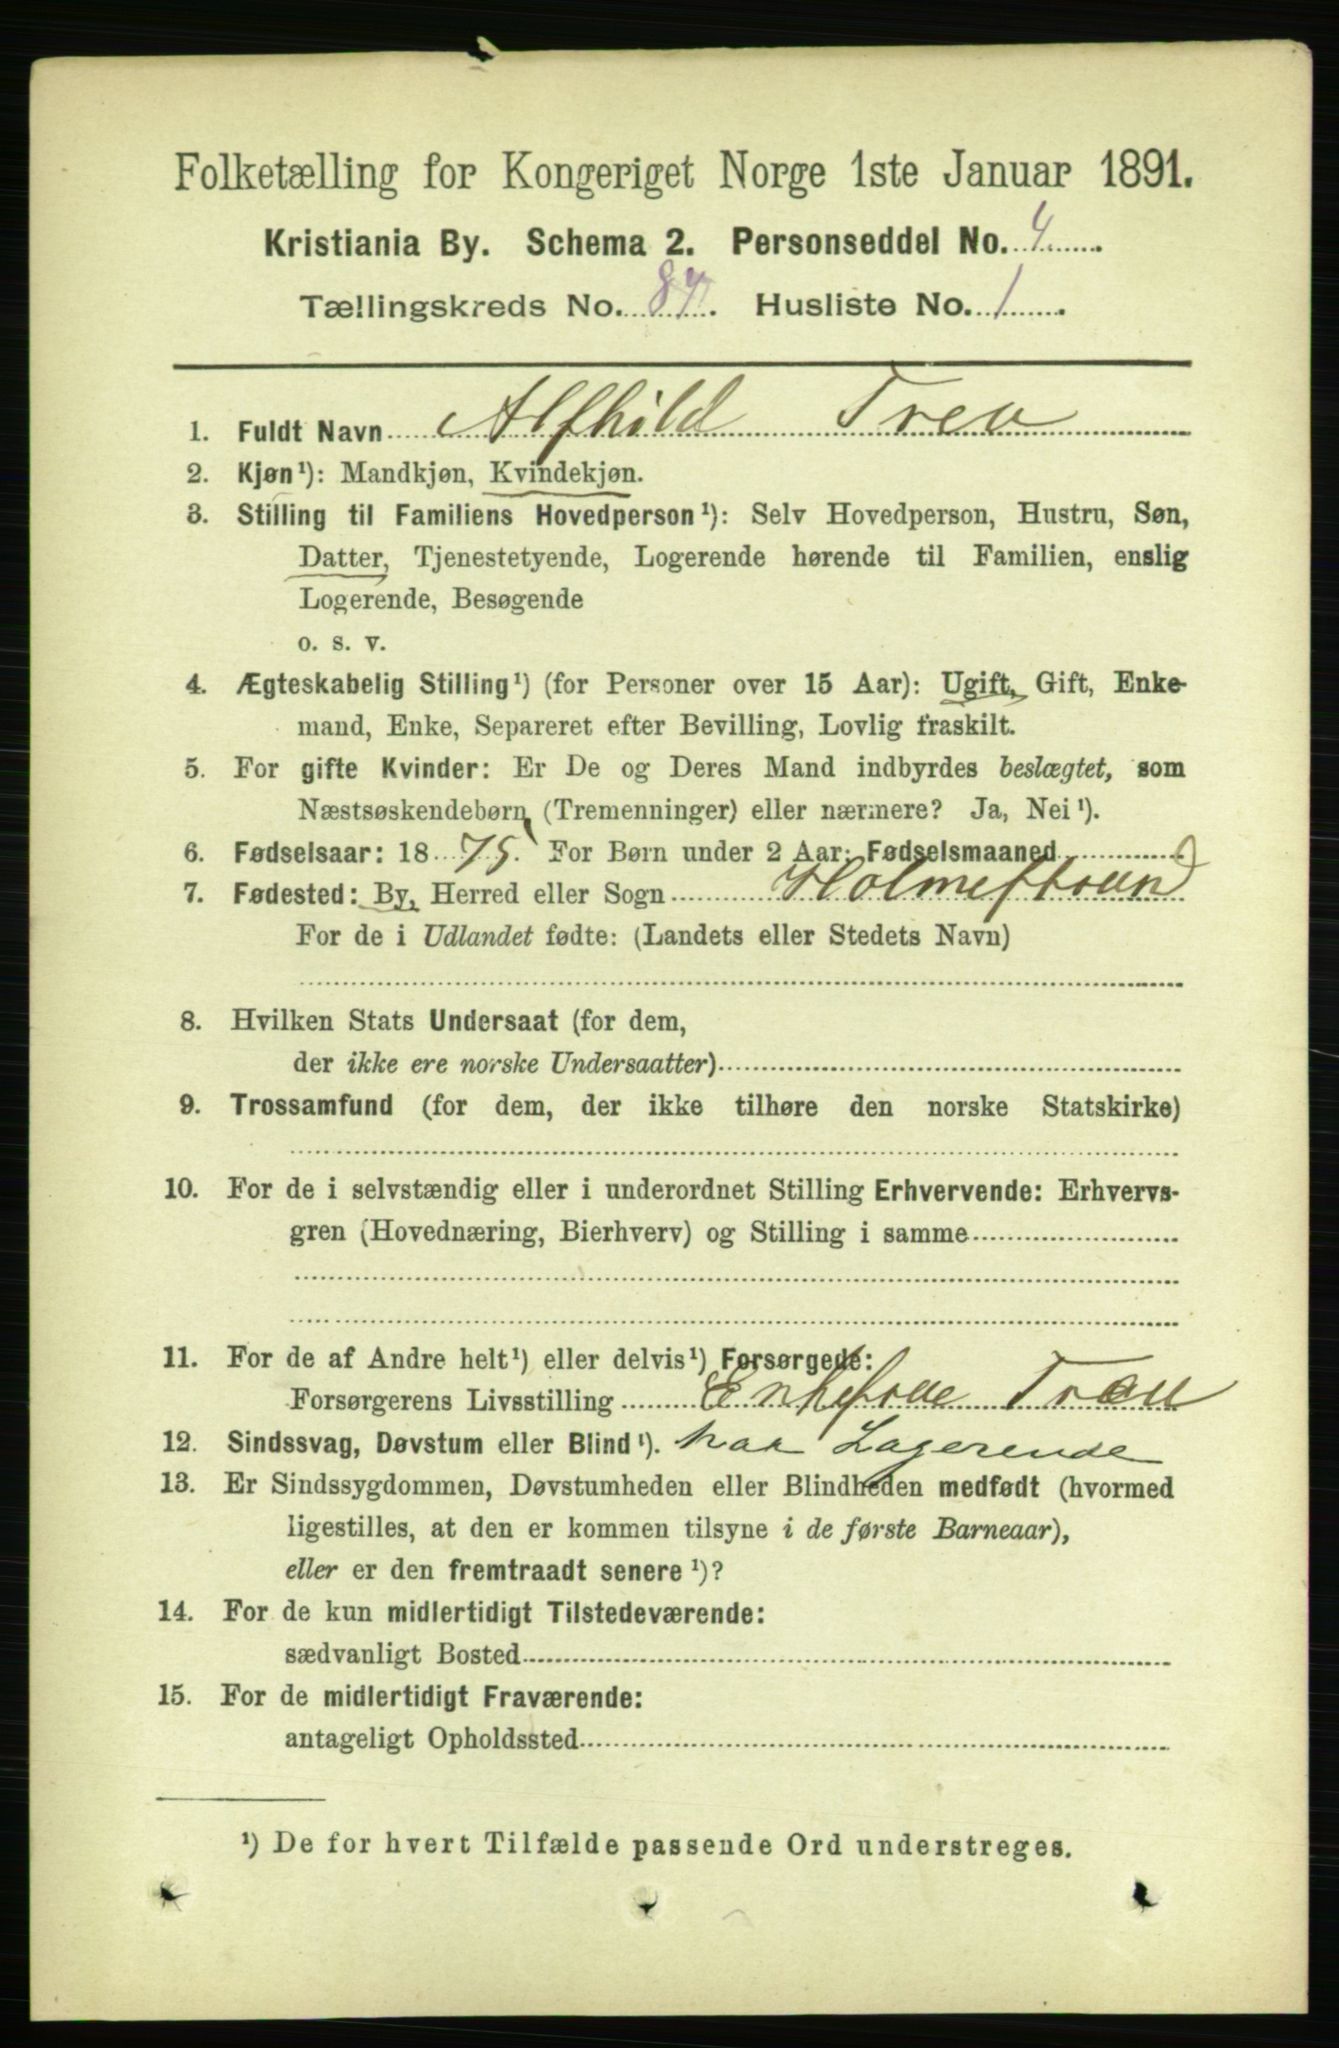 Folketælling for Kongeriget Norge 1ste Januar 1891.
Kristiania By. Schema 2. Personseddel No. 4
Tællingskreds No. 84. Husliste No. 1
1. Fuldt Navn Alfhild
2. Kjøn¹): Mandkjøn, Kvindekjøn.
3. Stilling til Familiens Hovedperson¹): Selv Hovedperson, Hustru, Søn,
Datter, Tjenestetyende, Logerende hørende til Familien, enslig
Logerende, Besøgende
o. s. v.
4. Ægteskabelig Stilling¹) (for Personer over 15 Aar): Ugift, Gift, Enke-
mand, Enke, Separeret efter Bevilling, Lovlig fraskilt.
5. For gifte Kvinder: Er De og Deres Mand indbyrdes beslægtet, som
Næstsøskendebørn (Tremenninger) eller nærmere? Ja, Nei¹).
6. Fødselsaar: 1875. For Børn under 2 Aar: Fødselsmaaned
7. Fødested: By, Herred eller Sogn Holmestrand
For de i Udlandet fødte: (Landets eller Stedets Navn)
8. Hvilken Stats Undersaat (for dem,
der ikke ere norske Undersaatter)
9. Trossamfund (for dem, der ikke tilhøre den norske Statskirke)
10. For de i selvstændig eller i underordnet Stilling Erhvervende: Erhvervs-
gren (Hovednæring, Bierhverv) og Stilling i samme
11. For de af Andre helt¹) eller delvis¹) Forsørgede:
Forsørgerens Livsstilling Enkefrue
12. Sindssvag, Døvstum eller Blind¹). har Logerende
13. Er Sindssygdommen, Døvstumheden eller Blindheden medfødt (hvormed
ligestilles, at den er kommen tilsyne i de første Barneaar),
eller er den fremtraadt senere¹)?
14. For de kun midlertidigt Tilstedeværende:
sædvanligt Bosted
15. For de midlertidigt Fraværende:
antageligt Opholdssted
¹) De for hvert Tilfælde passende Ord understreges.